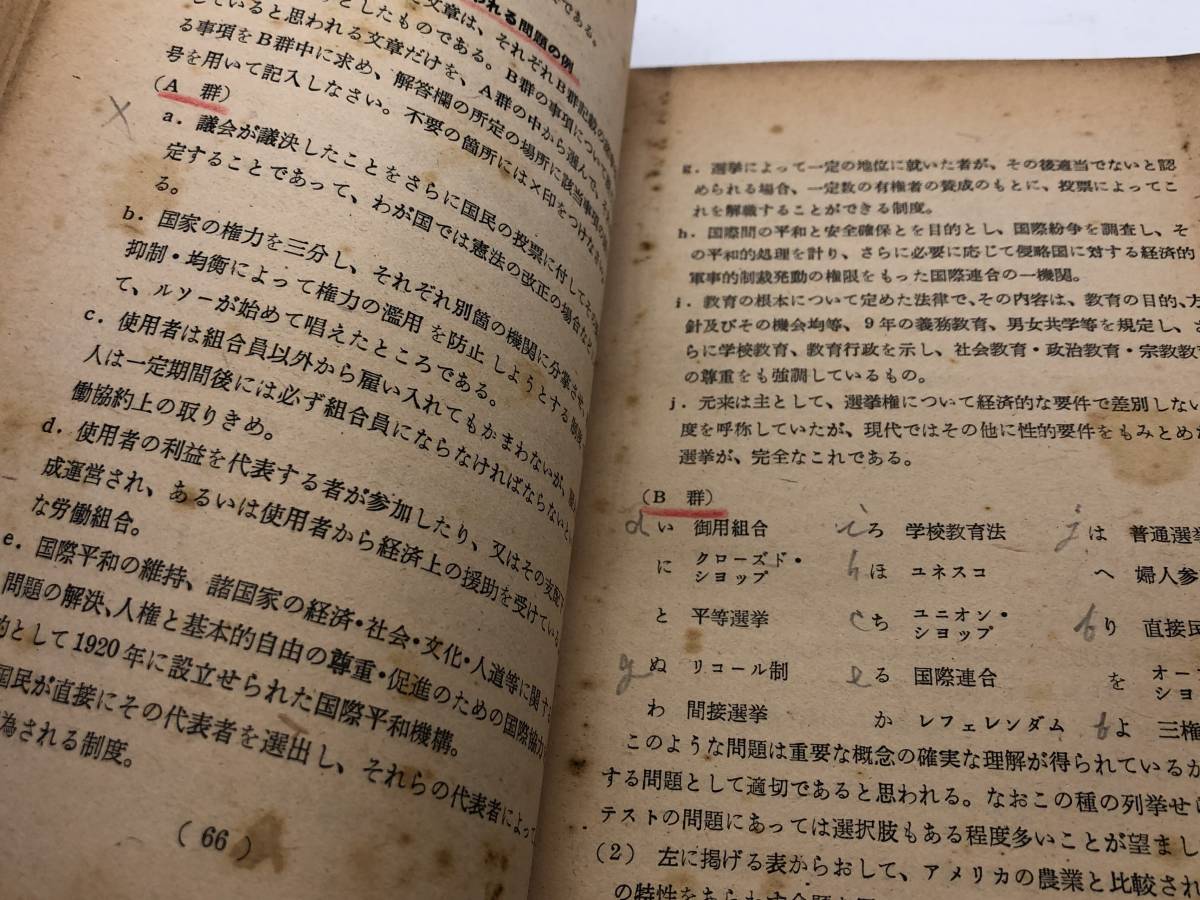 われる問題の例
た文章は、それぞれB群記載の
していると思われる文章だけを、A群の中から選んで、
る事項をB群中に求め、解答欄の所定の場所に該当事項の
号を用いて記入しなさい。不要の箇所には×印をつけなさい。
(A 群)
×
a．議会が議決したことをさらに国民の投票に付して
定することであって、わが国では憲法の改正の場合など
る。
b．国家の権力を三分し、それぞれ別箇の機関に分掌させ
抑制・均衡によって権力の濫用を防止しようとする制度
て、ルソーが始めて唱えたところである。
c．使用者は組合員以外から雇い入れてもかまわないが、
人は一定期間後には必ず組合員にならなければならないと
働協約上の取りきめ。
d．使用者の利益を代表する者が参加したり、又はその支配下
成運営され、あるいは使用者から経済上の援助を受けている
な労働組合。
e．国際平和の維持、諸国家の経済・社会・文化・人道等に関する
問題の解決、人権と基本的自由の尊重・促進のための国際協力
的として1920年に設立せられた国際平和機構。
国民が直接にその代表者を選出し、それらの代表者によって
為される制度。
(66)
g．選挙によって一定の地位に就いた者が、その後適当でないと認
められる場合、一定数の有権者の賛成のもとに、投票によってこ
れを解職することができる制度。
h．国際間の平和と安全確保とを目的とし、国際紛争を調査し、そ
の平和的処理を計り、さらに必要に応じて侵略国に対する経済的
軍事的制裁発動の権限をもった国際連合の一機関。
i．教育の根本について定めた法律で、その内容は、教育の目的、方
針及びその機会均等、9年の義務教育、男女共学等を規定し、さ
らに学校教育、教育行政を示し、社会教育・政治教育・宗教教育
の尊重をも強調しているもの。
j．元来は主として、選挙権について経済的な要件で差別しない
度を呼称していたが、現代ではその他に性的要件をもみとめ
選挙が、完全なこれである。
(B 群)
d い 御用組合 i ろ 学校教育法 j は 普通選
に クローズド・ショップ h ほ ユネスコ へ 婦人参
と 平等選挙 c ち ユニオン・ショップ f り 直接民
g ぬ リコール制 e る 国際連合 を オー ショ
わ 間接選挙 か レフェレンダム b よ 三権
このような問題は重要な概念の確実な理解が得られているか
する問題として適切であると思われる。なおこの種の列挙せ
テストの問題にあっては選択肢もある程度多いことが望まし
(2) 左に掲げる表からおして、アメリカの農業と比較され
の特性をあらわす